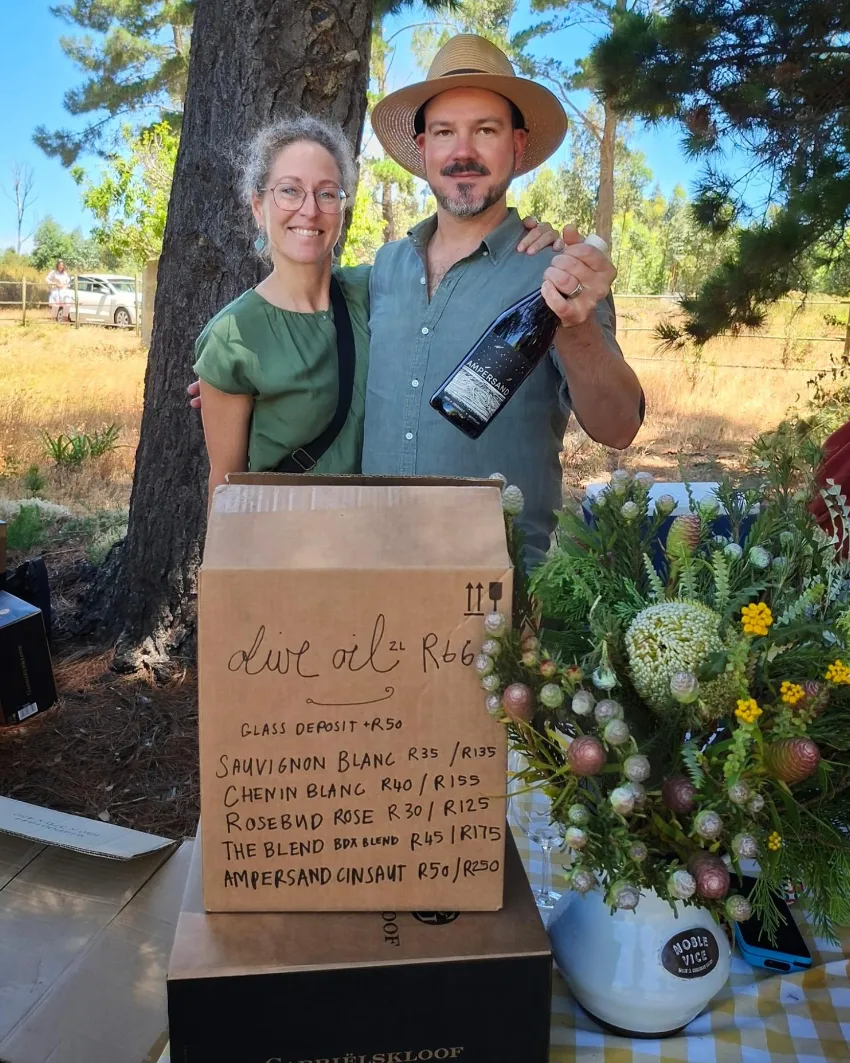 AMPERSAND
olive oil 2L R66
GLASS DEPOSIT +R50
SAUVIGNON BLANC R35 / R135
CHENIN BLANC R40 / R155
ROSEBUD ROSE R30 / R125
THE BLEND BDX BLEND R45 / R175
AMPERSAND CINSAUT R50 / R250
OOF
NOBLE
VICE
GABRIËLSKLOOF